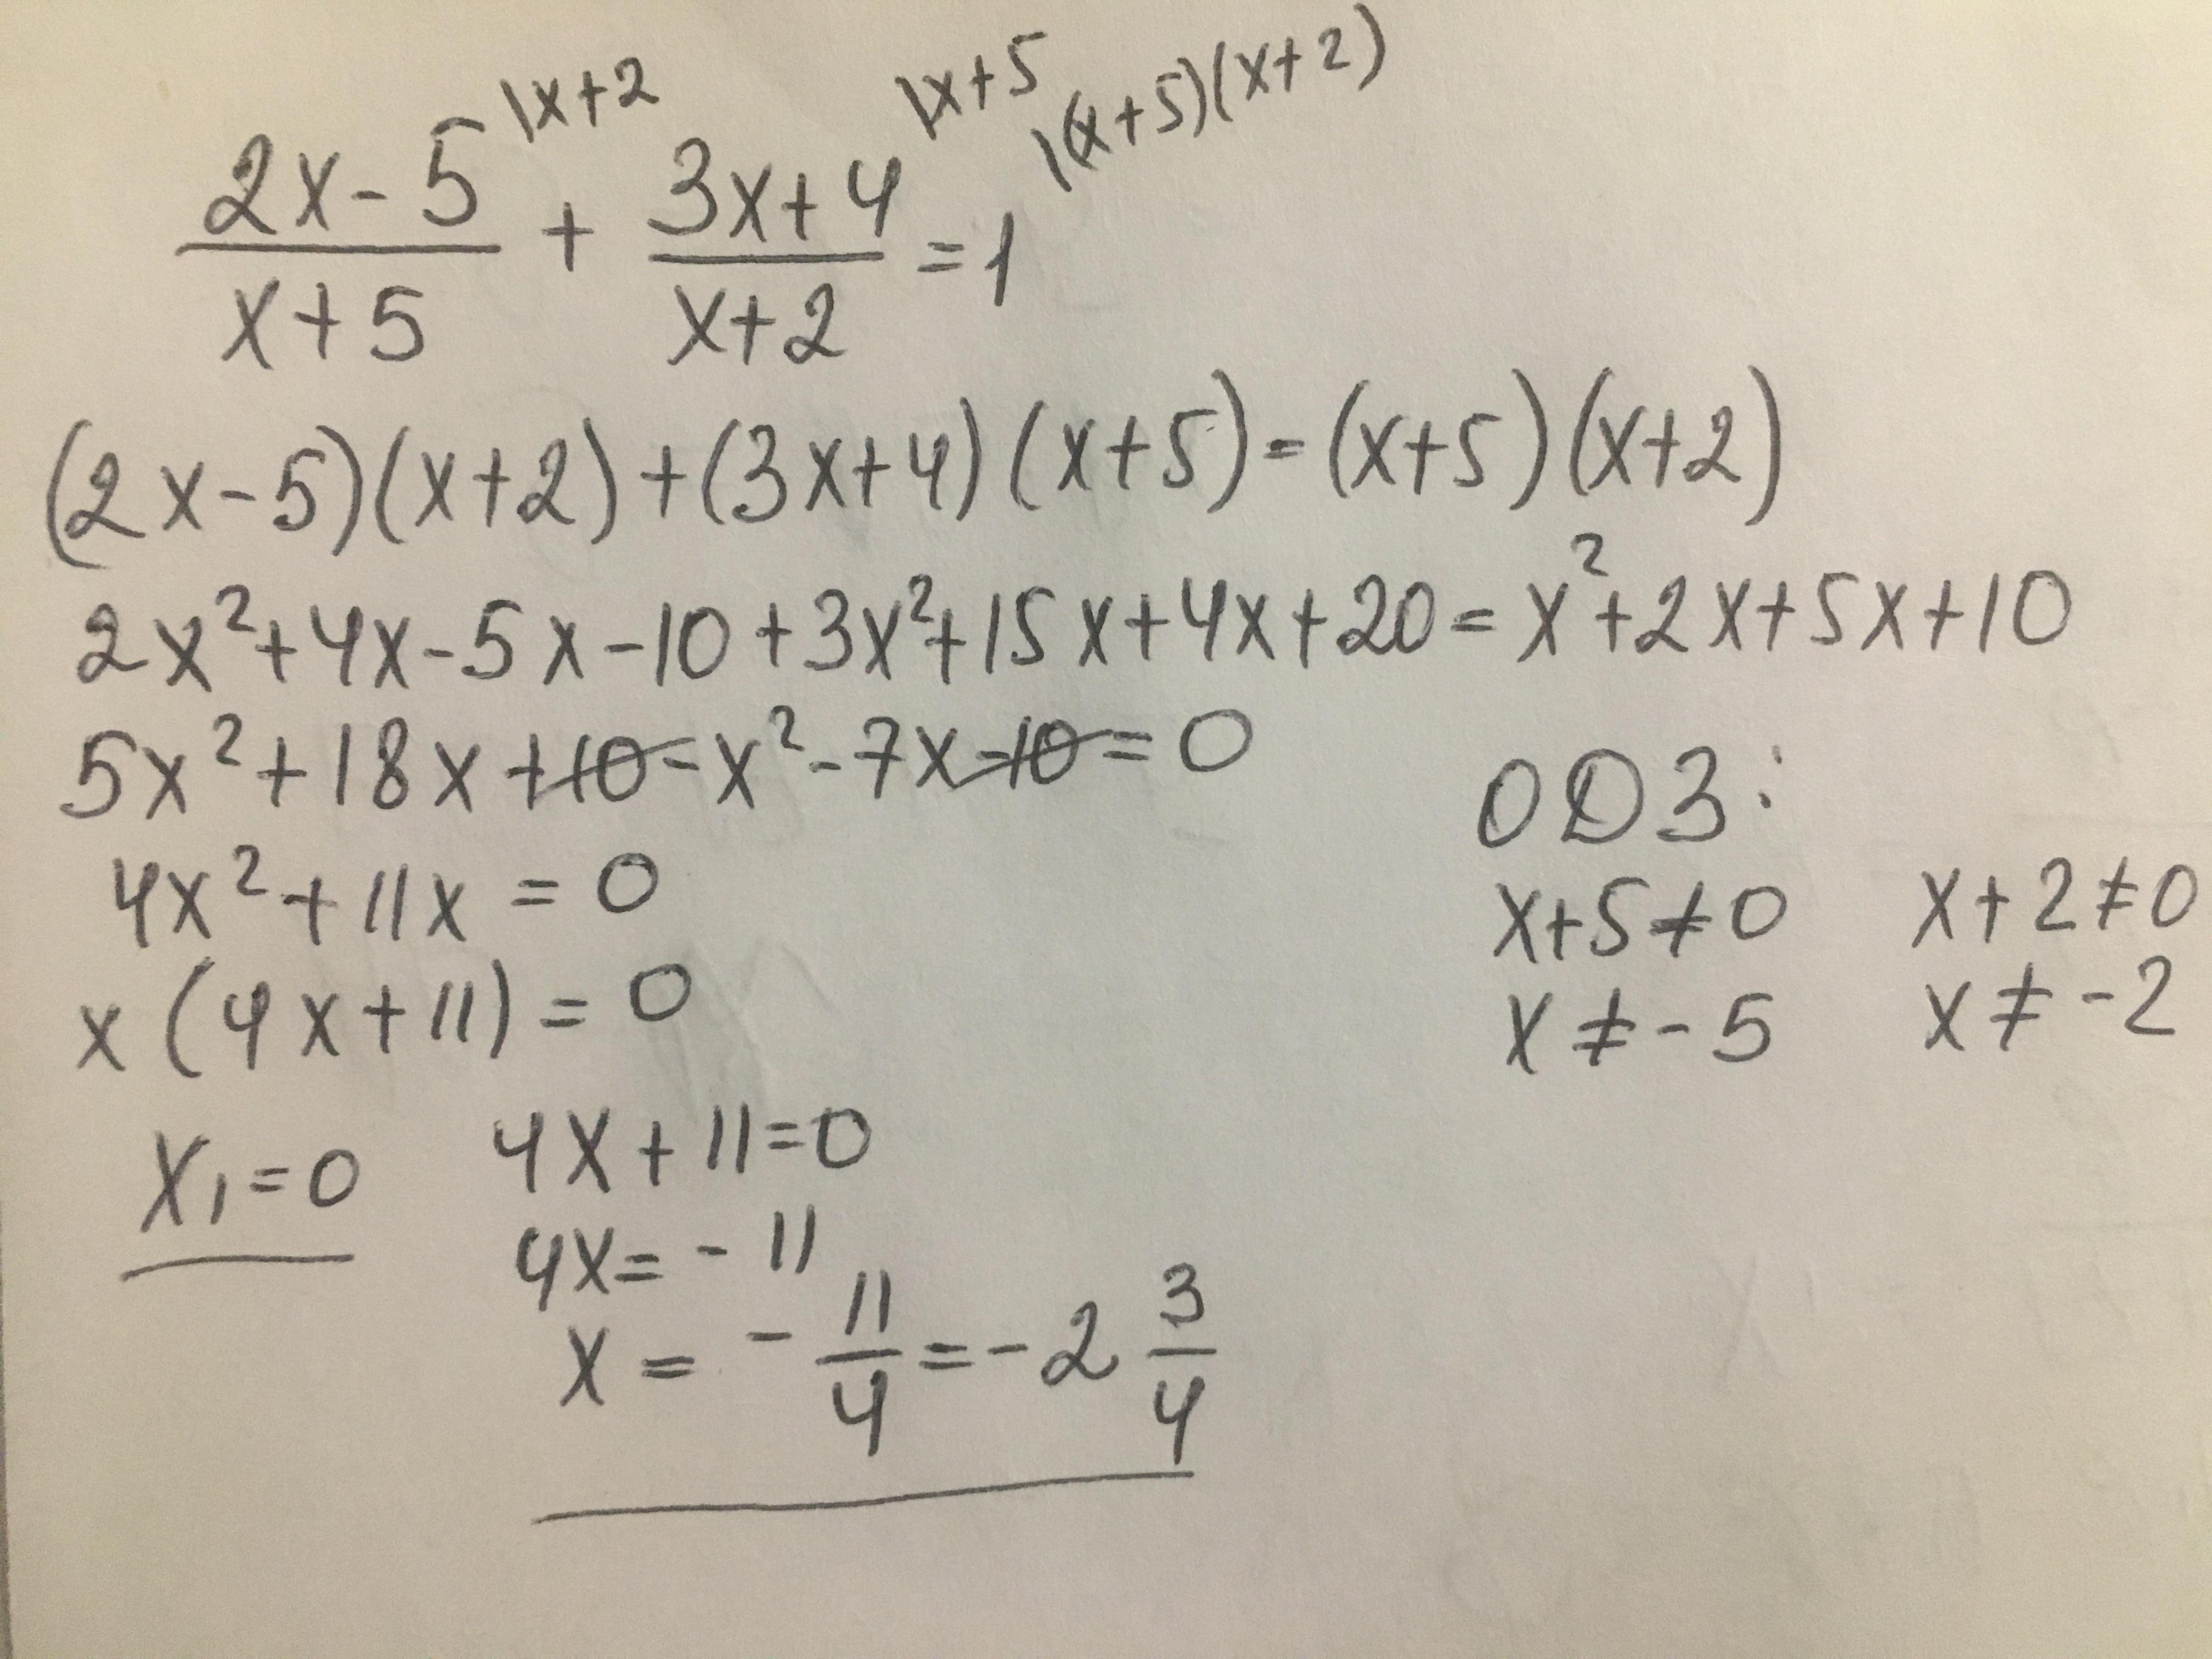 \x+2 \x+5 \(x+5)(x+2)
(2x-5)/(x+5) + (3x+4)/(x+2) = 1
(2x-5)(x+2)+(3x+4)(x+5)=(x+5)(x+2)
2x²+4x-5x-10+3x²+15x+4x+20=x²+2x+5x+10
5x²+18x+10-x²-7x-10=0
4x²+11x=0
x(4x+11)=0
x₁=0
4x+11=0
4x=-11
x=-11/4=-2 3/4
ОДЗ:
x+5≠0 x+2≠0
x≠-5 x≠-2